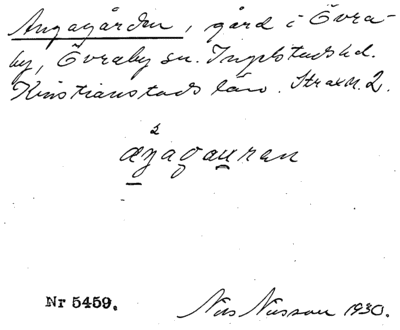 Angagården, gård i Övra-
by, Övraby sn. Ingelstads hd.
Kristianstads län. Strax n. 2.
2
aŋagauran
Nr 5459.
Nils Nilsson 1930.